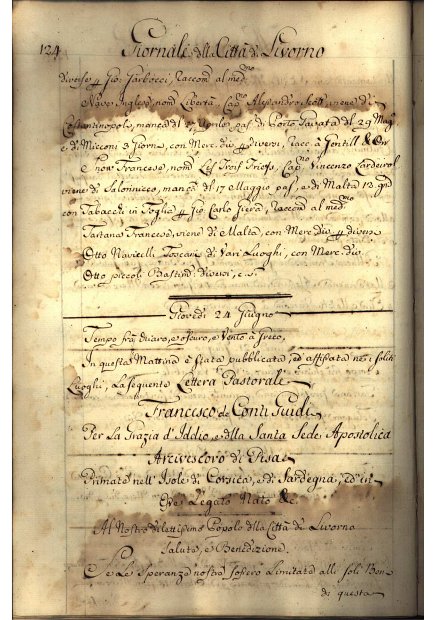 124 Giornale della Città di Livorno
diverse p Gio: Garbocci, Raccomd al medmo
Nave Inglese, nomta Libertà, Capno Alessandro Scott, viene di
Costantinopoli, manca dl 2 Aprile, pas: di Porto
e di Micconi 3 Giorni, con Merc: div: p diversi, Racc: a Gentill &
nom Francese, nomta Les Trois Freres, Capno Vincenzo
viene di Salonicco, manca dl 17 Maggio pas, e di Malta 13 gni
con Tabacchi in Foglie p Gio: Carlo Fiera, Raccomd al medmo
Tartana Francese, viene di Malta, con Merc: div: p diversi
Otto Navicelli Toscani di Vari Luoghi, con Merc: div:
Otto piccoli Bastimti diversi, e S.
Giovedì 24 Giugno
Tempo frà chiaro, e oscuro, e Vento a Greco,
In questa Mattina è stata pubblicata, ed affissata nei soliti
Luoghi, la seguente Lettera Pastorale
Francesco de Conti Guidi
Per La Grazia d'Iddio, e della Santa Sede Apostolica
Arcivescovo di Pisa
Primate nell'Isole di Corsica, e di Sardegna, ed in
Esse Legato Nato &c.
Al Nostro dilettissimo Popolo della Città di Livorno
Salute, e Benedizione.
Se le Speranze nostre fossero limitate alli soli Beni
di questa